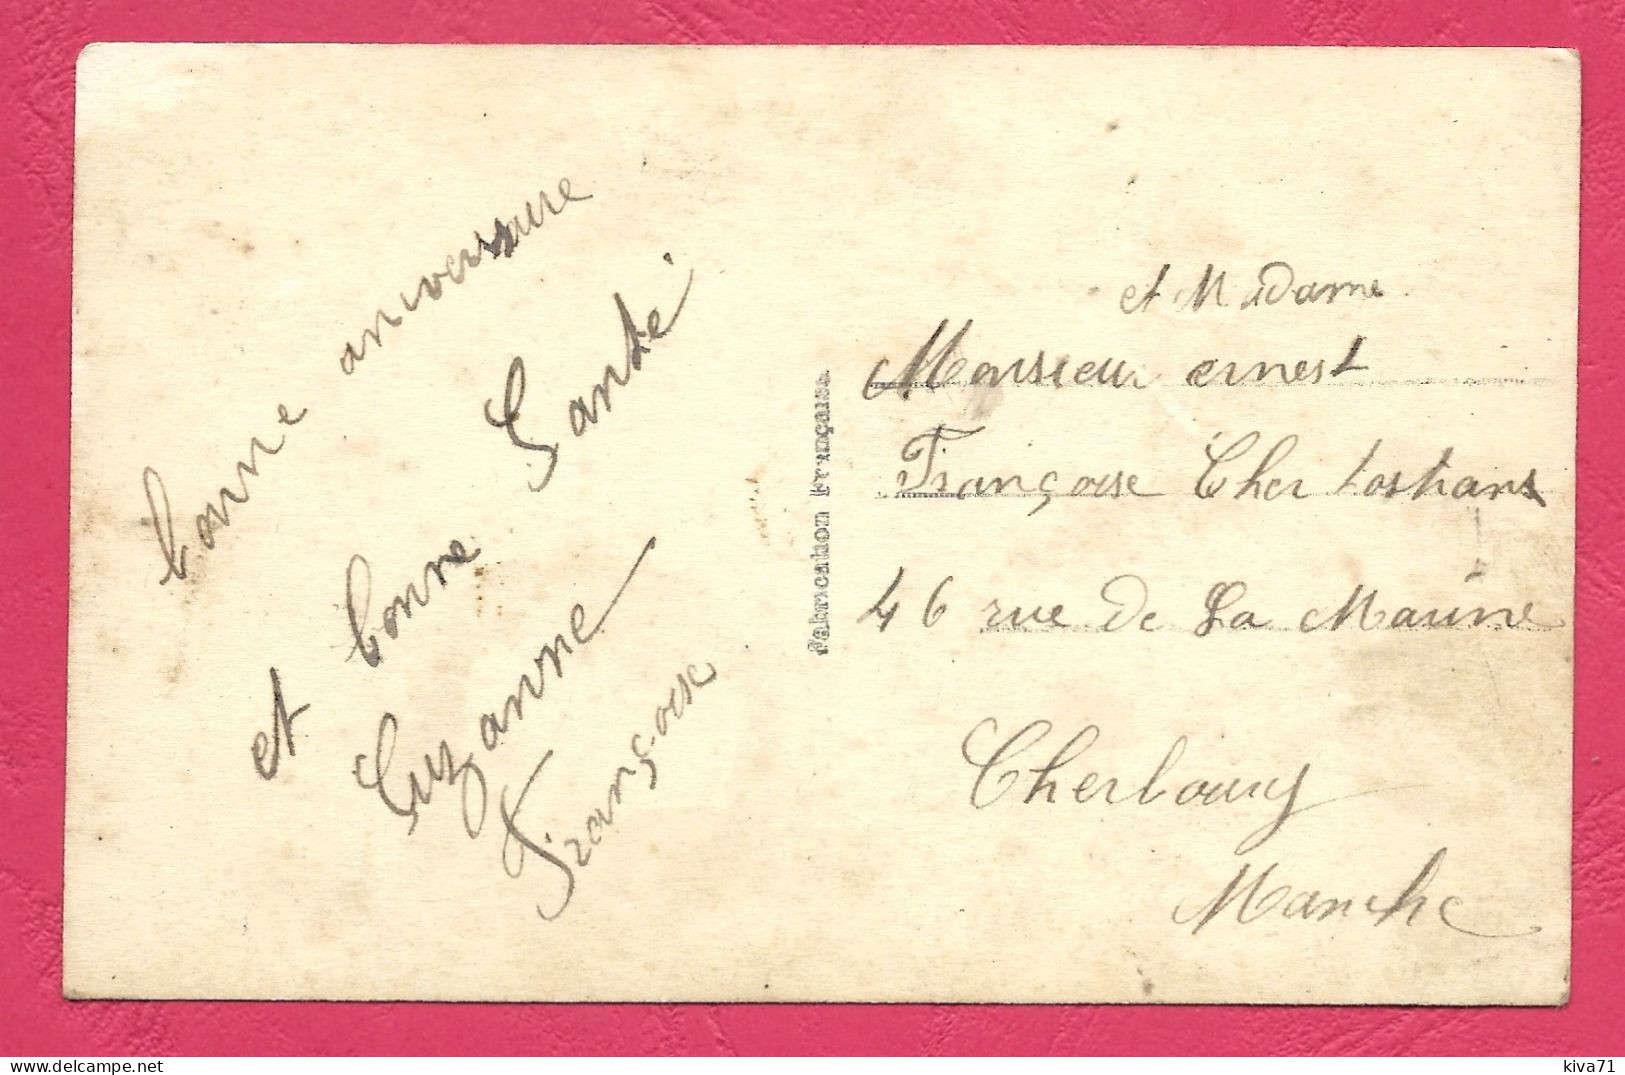 bonne anniversaire
et bonne Santé
Suzanne
Françoise
Fabrication Française
et Madame
Monsieur ernest
Françoise Cher
46 rue de La Marine
Cherbourg
Manche
kiva71